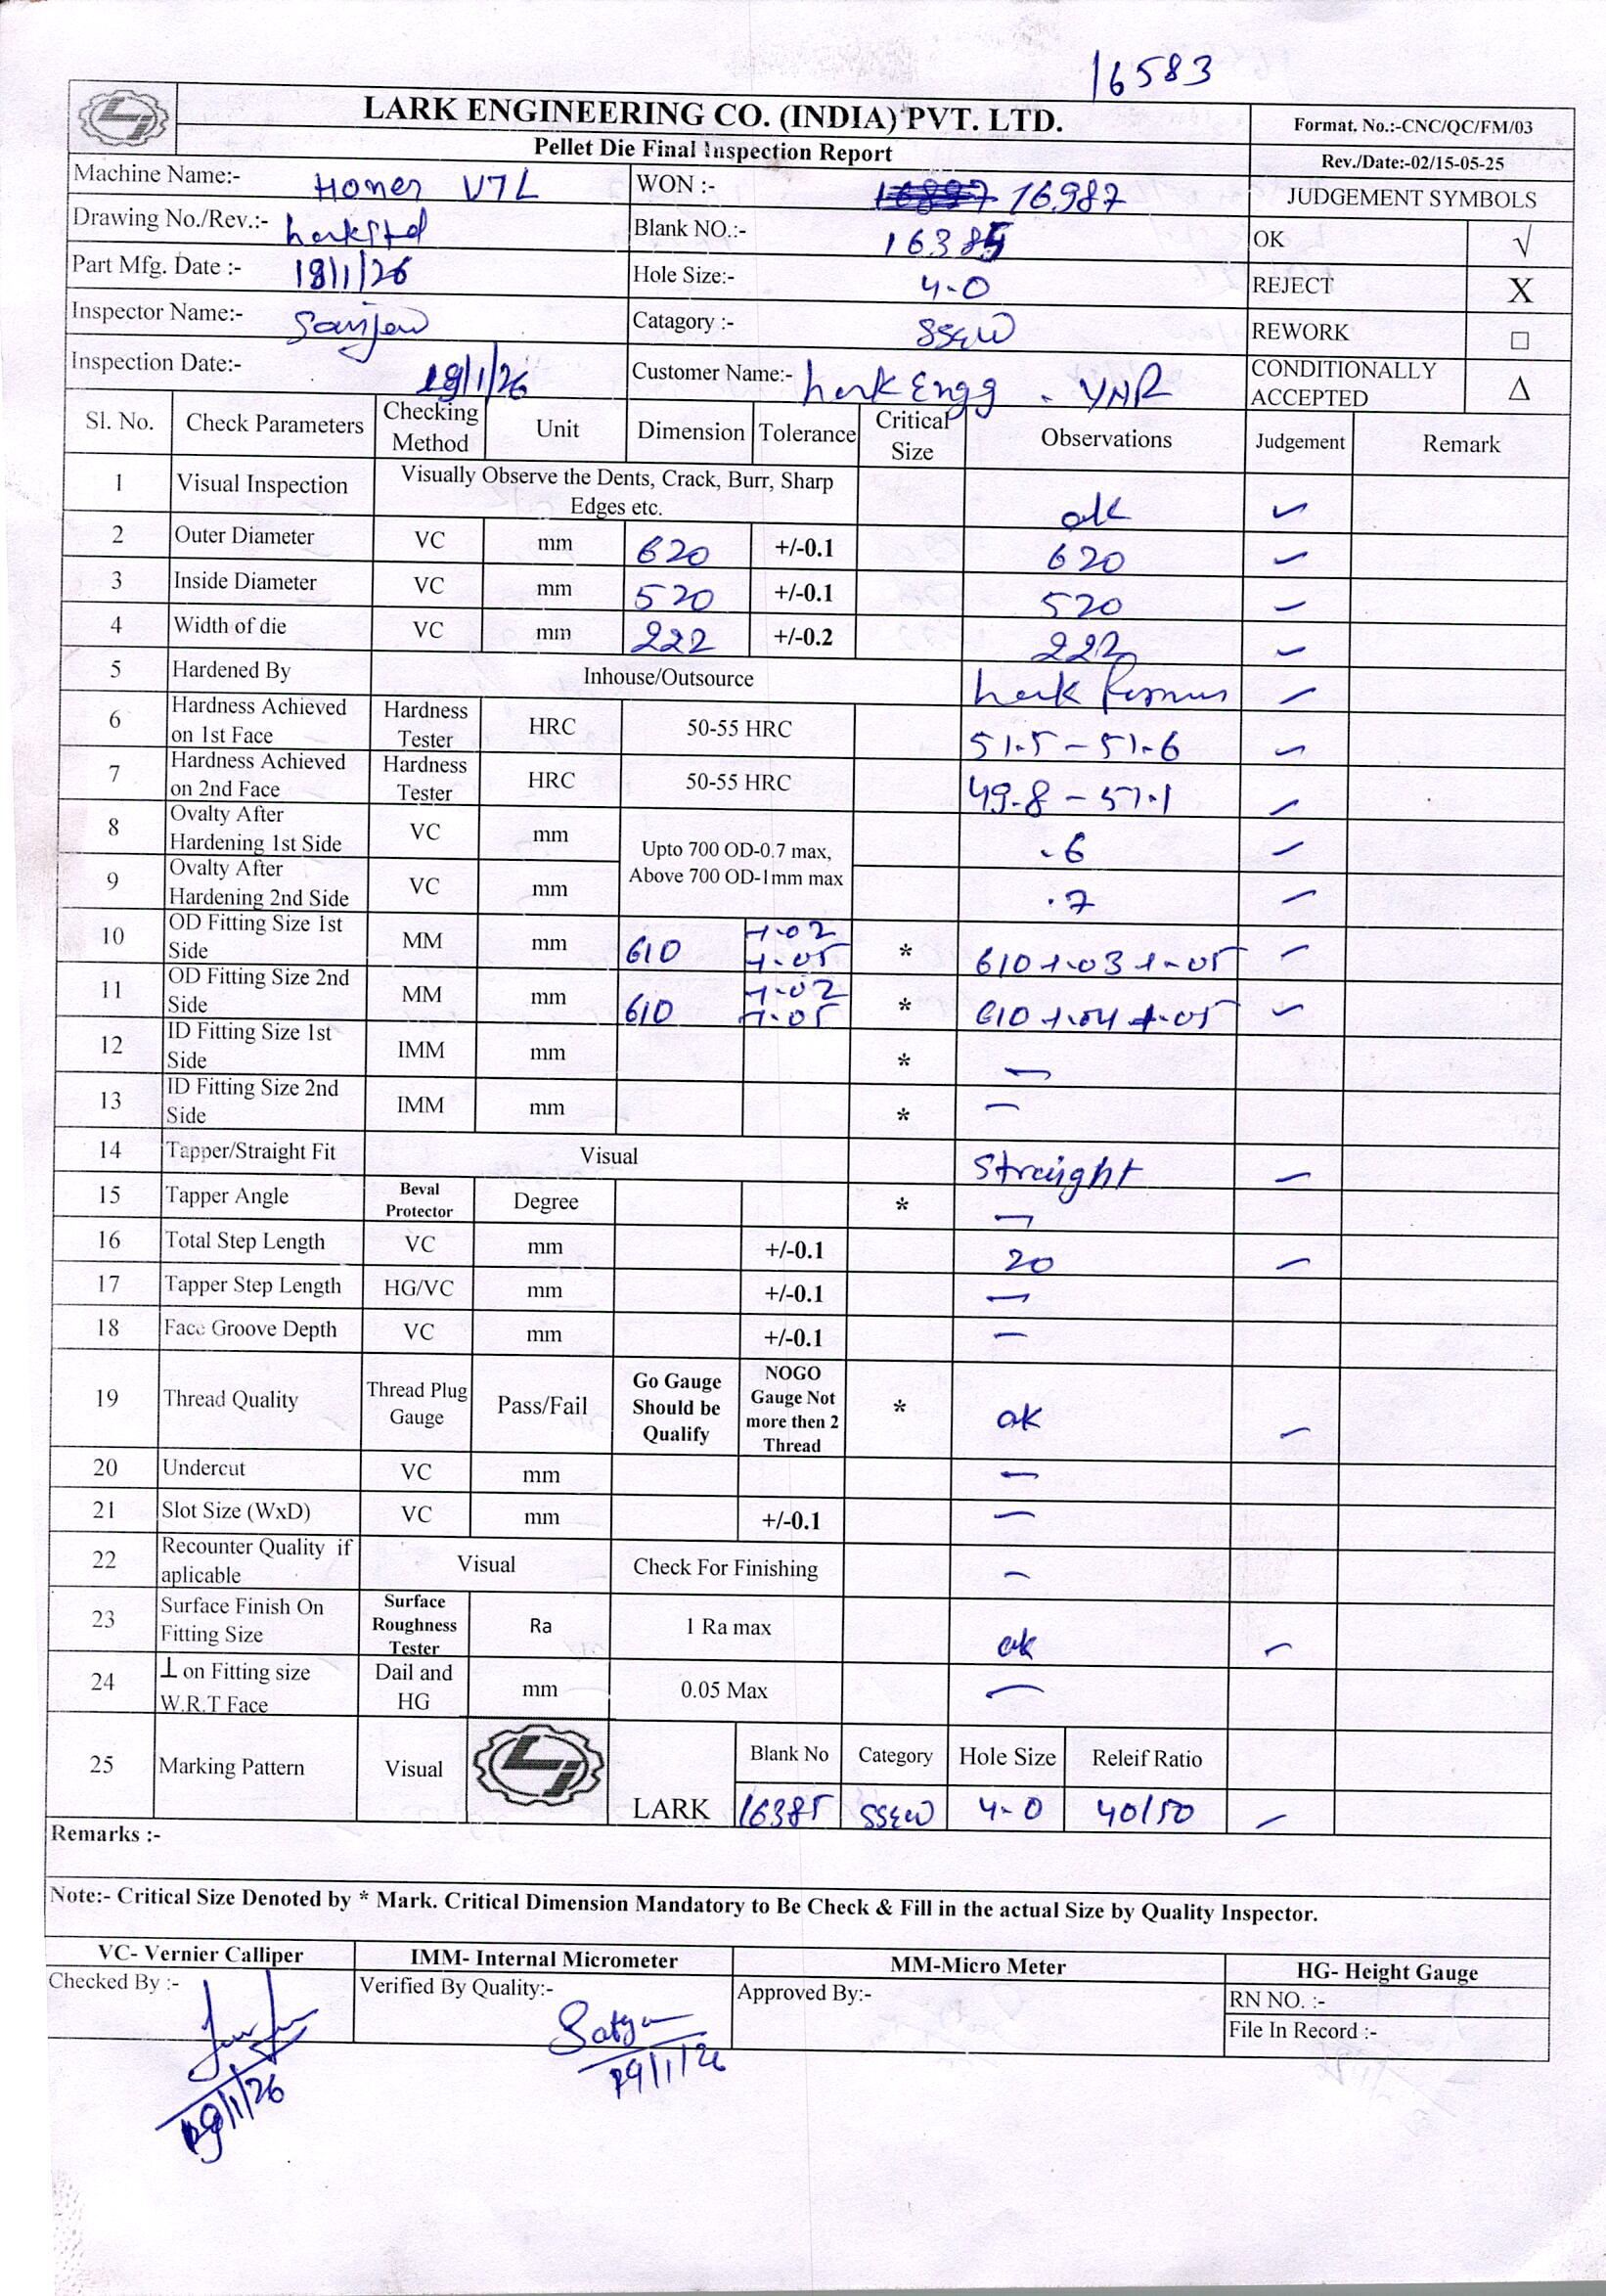 16583
LARK ENGINEERING CO. (INDIA) PVT. LTD.
Format. No.:-CNC/QC/FM/03
Pellet Die Final Inspection Report
Rev./Date:-02/15-05-25
Machine Name:- V7L WON :- 16987 JUDGEMENT SYMBOLS
Drawing No./Rev.:- Blank NO.:- 16385 OK √
Part Mfg. Date :- 18/1/26 Hole Size:- 4.0 REJECT X
Inspector Name:- Catagory :- REWORK □
Inspection Date:- 19/1/26 Customer Name:- Lark Engg. YNR CONDITIONALLY ACCEPTED Δ
Sl. No. Check Parameters Checking Method Unit Dimension Tolerance Critical Size Observations Judgement Remark
1 Visual Inspection Visually Observe the Dents, Crack, Burr, Sharp Edges etc. ok
2 Outer Diameter VC mm 620 +/-0.1 620
3 Inside Diameter VC mm 520 +/-0.1 520
4 Width of die VC mm 222 +/-0.2 222
5 Hardened By Inhouse/Outsource Lark
6 Hardness Achieved on 1st Face Hardness Tester HRC 50-55 HRC 51.5 - 51.6
7 Hardness Achieved on 2nd Face Hardness Tester HRC 50-55 HRC 49.8 - 51.1
8 Ovalty After Hardening 1st Side VC mm Upto 700 OD-0.7 max, Above 700 OD-1mm max .6
9 Ovalty After Hardening 2nd Side VC mm .7
10 OD Fitting Size 1st Side MM mm 610 +.02 +.05 * 610 +.03 +.05
11 OD Fitting Size 2nd Side MM mm 610 +.02 +.05 * 610 +.04 +.05
12 ID Fitting Size 1st Side IMM mm * —
13 ID Fitting Size 2nd Side IMM mm * —
14 Tapper/Straight Fit Visual Straight
15 Tapper Angle Beval Protector Degree * —
16 Total Step Length VC mm +/-0.1 20
17 Tapper Step Length HG/VC mm +/-0.1 —
18 Face Groove Depth VC mm +/-0.1 —
19 Thread Quality Thread Plug Gauge Pass/Fail Go Gauge Should be Qualify NOGO Gauge Not more then 2 Thread * ok
20 Undercut VC mm —
21 Slot Size (WxD) VC mm +/-0.1 —
22 Recounter Quality if aplicable Visual Check For Finishing —
23 Surface Finish On Fitting Size Surface Roughness Tester Ra 1 Ra max ok
24 ⊥ on Fitting size W.R.T Face Dail and HG mm 0.05 Max —
25 Marking Pattern Visual LARK Blank No Category Hole Size Releif Ratio
16385 4.0 40/50
Remarks :-
Note:- Critical Size Denoted by * Mark. Critical Dimension Mandatory to Be Check & Fill in the actual Size by Quality Inspector.
VC- Vernier Calliper IMM- Internal Micrometer MM-Micro Meter HG- Height Gauge
Checked By :- Verified By Quality:- Approved By:- RN NO. :-
File In Record :-
19/1/26 19/1/26